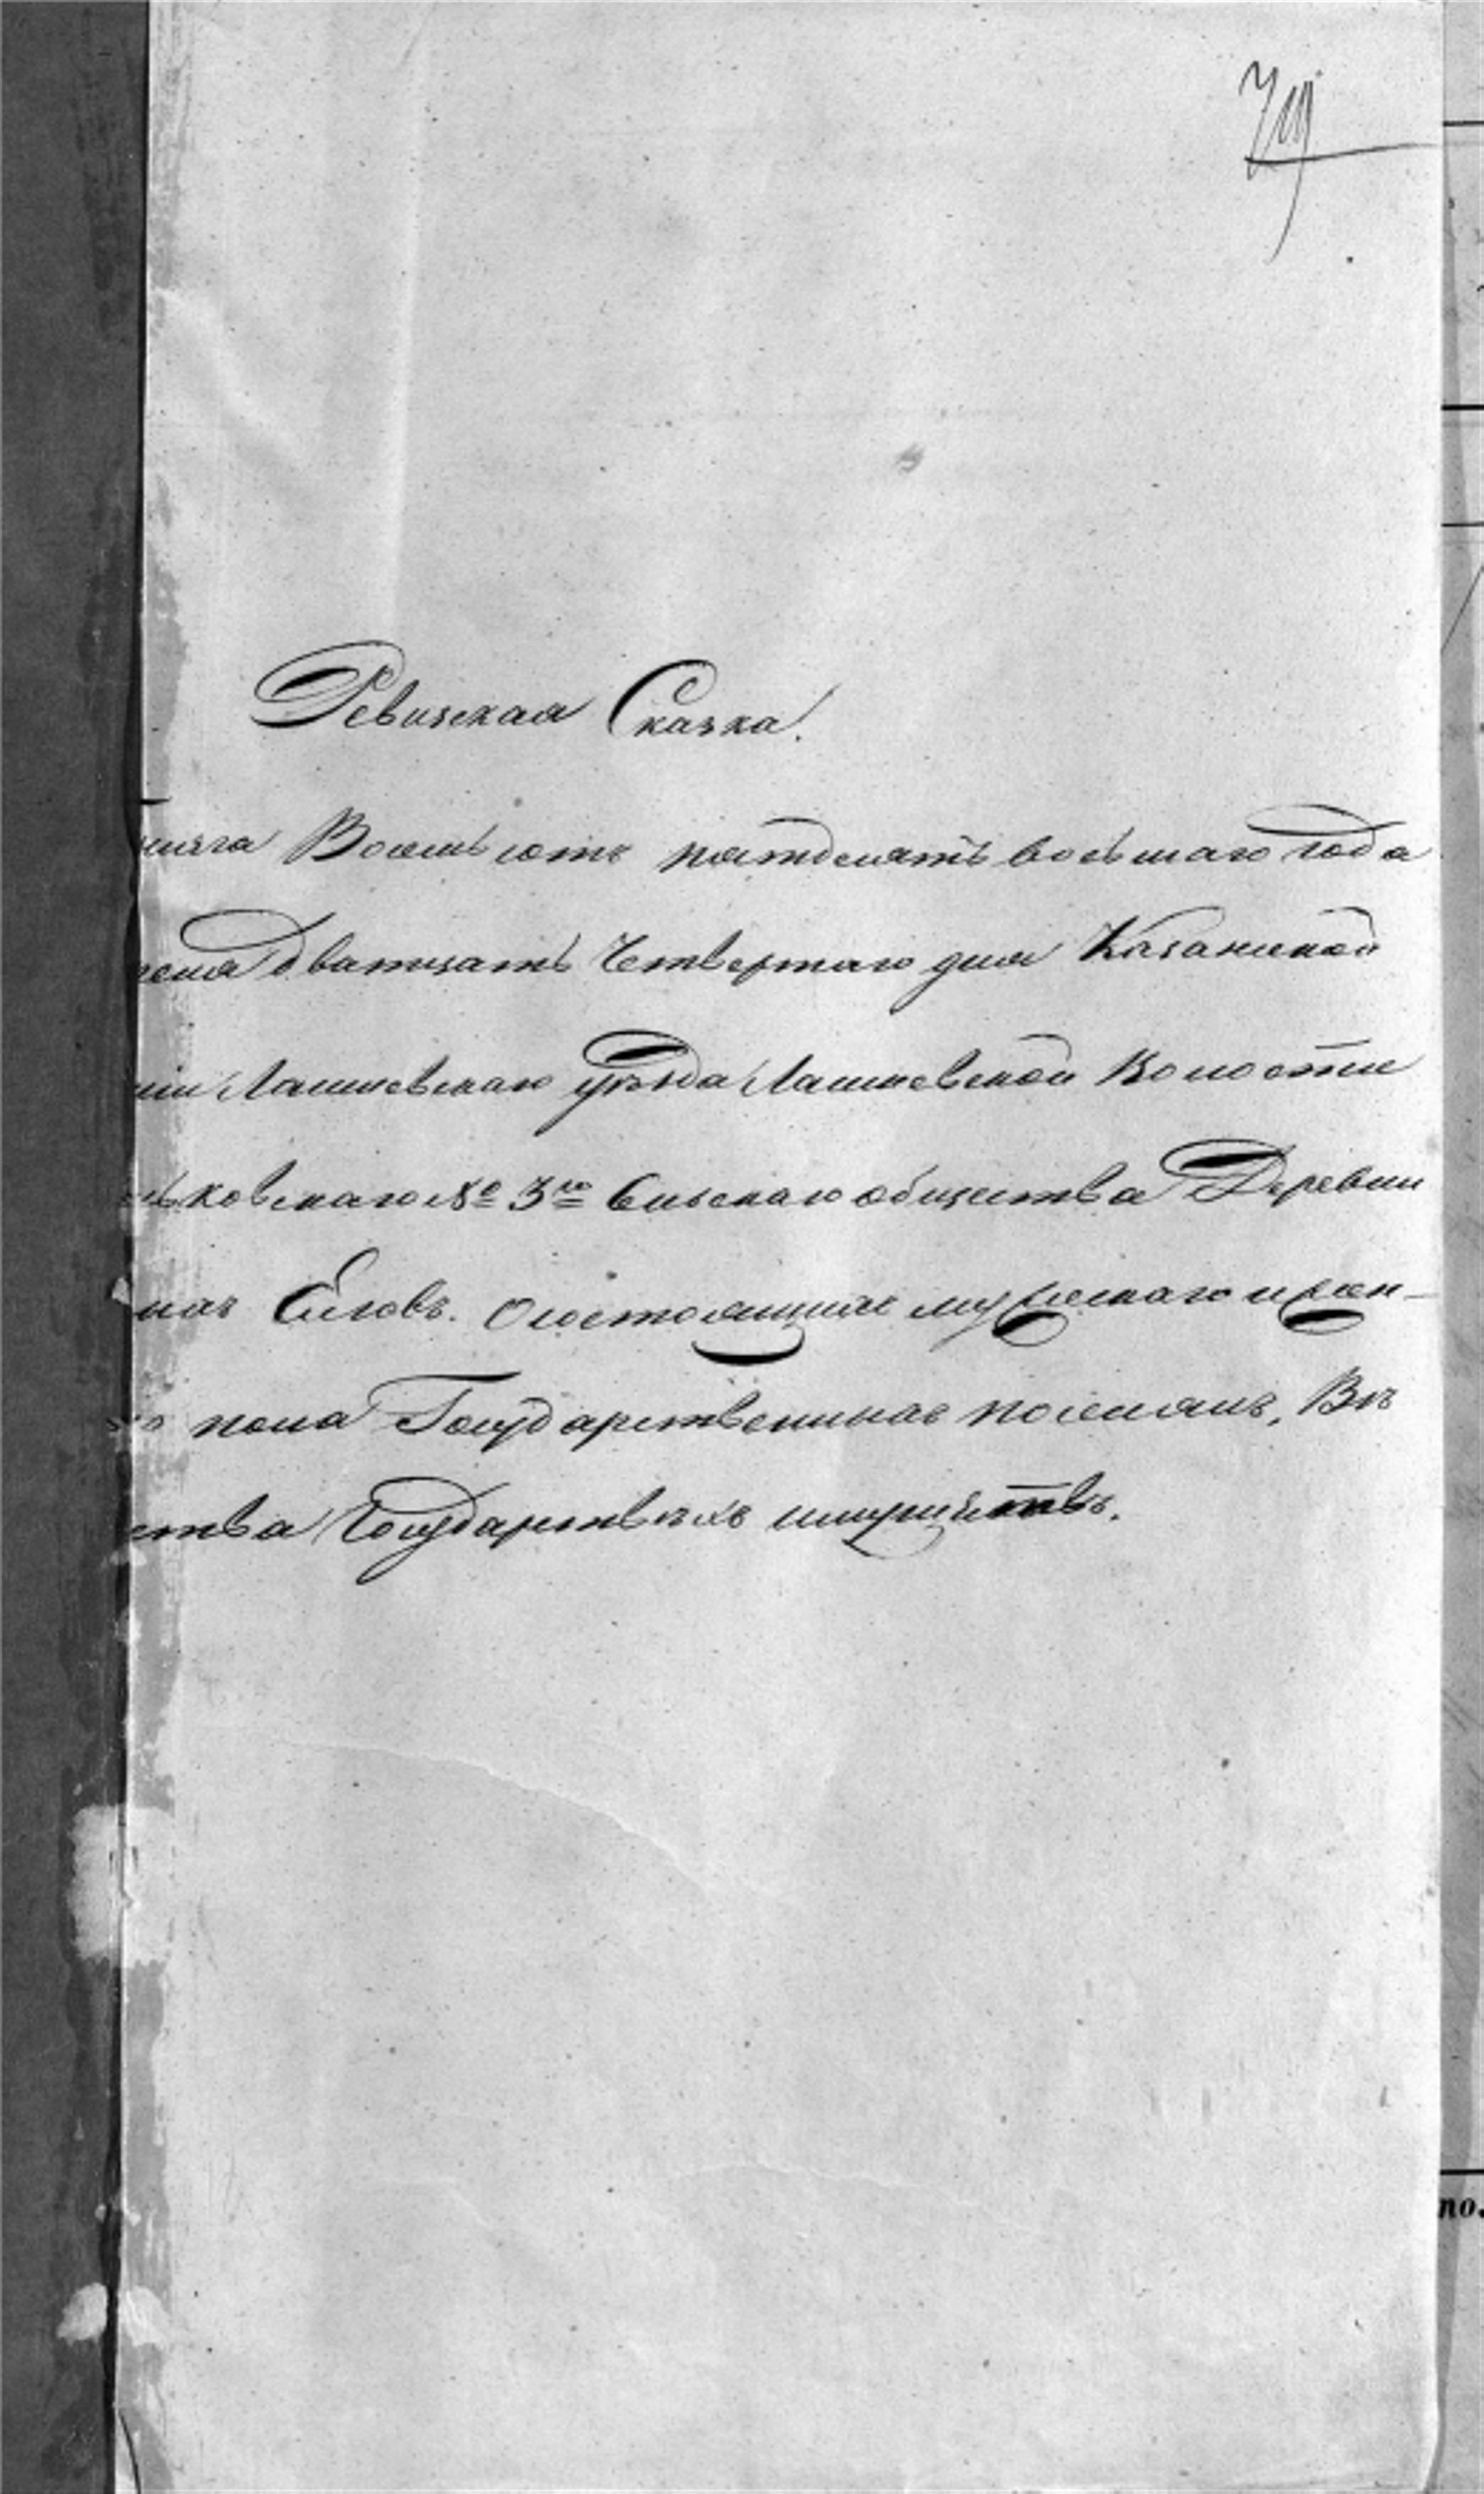 Ревизская Сказка.
Восемьсотъ пятдесятъ восьмаго года
дватцать Четвертаго дня Казанской
Лаишевскаго уѣзда Лаишевской Волости
ковскаго № 3го Сельскаго общества Деревни
Еговъ. О состоящихъ мужескаго и жен-
пола Государственныхъ поселянъ, Вѣ
ства Государствѣхъ имуществъ.
по.